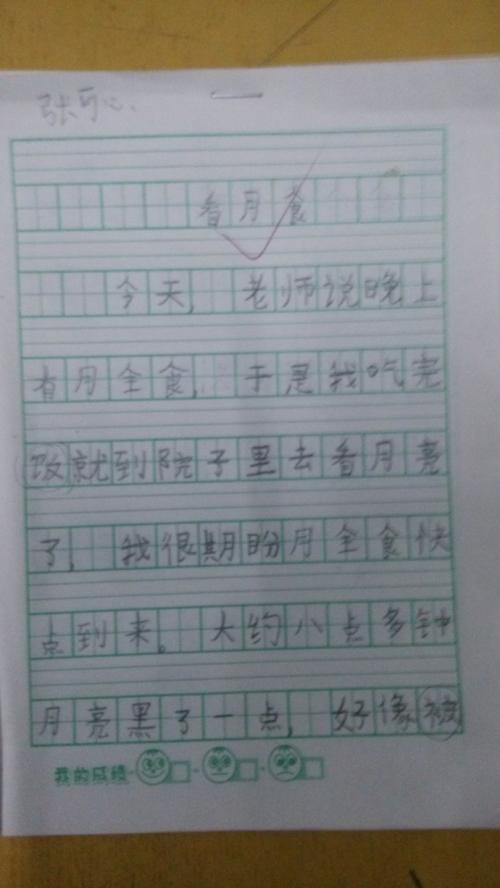 张可心
看月食
今天，老师说晚上
有月全食，于是我吃完
饭就到院子里去看月亮
了，我很期盼月全食快
点到来。大约八点多钟
月亮黑了一点，好像被
我的成绩